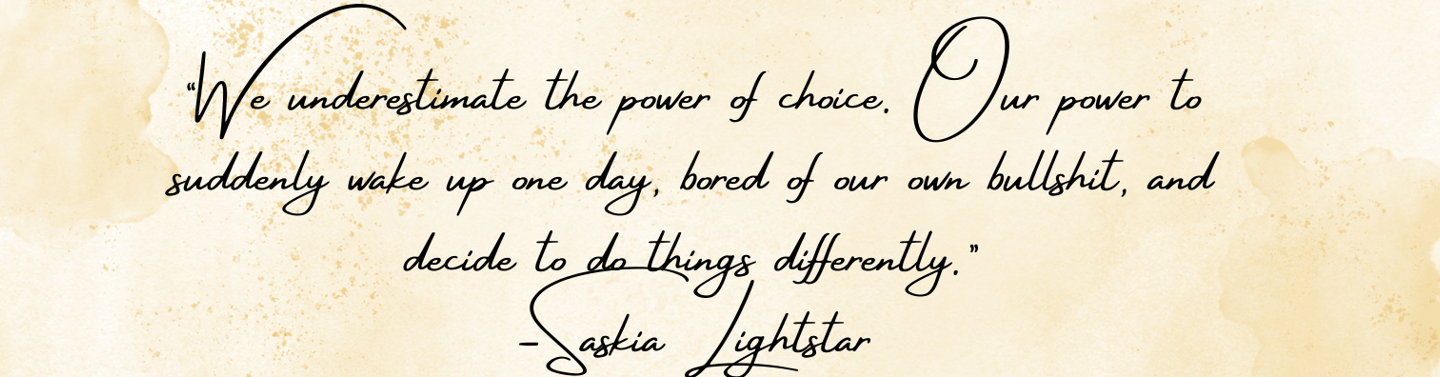 “We underestimate the power of choice. Our power to
suddenly wake up one day, bored of our own bullshit, and
decide to do things differently.”
-Saskia Lightstar